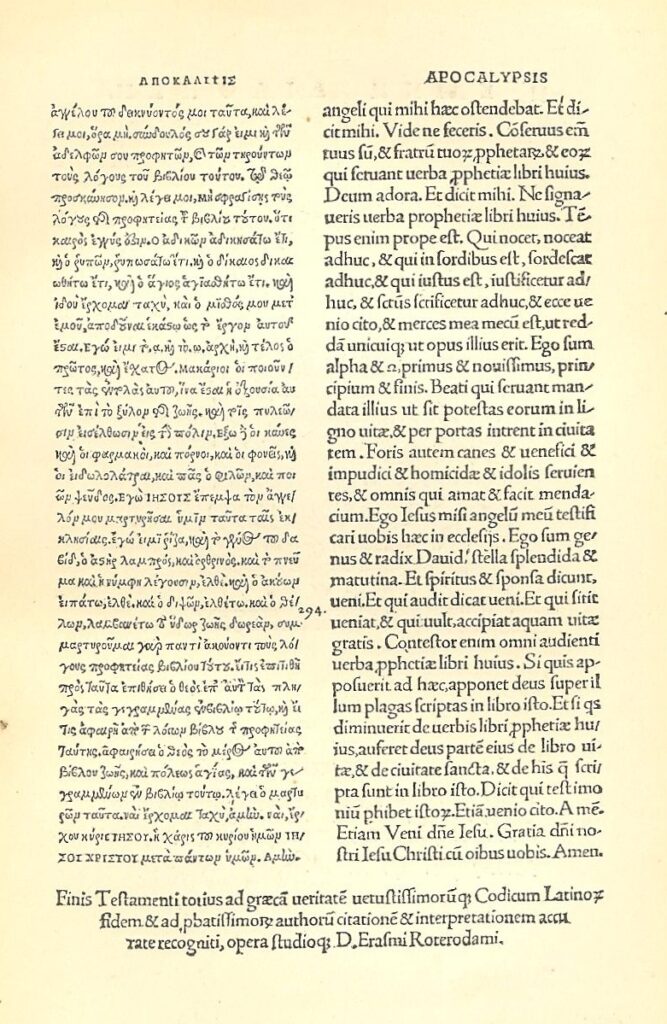 ΑΠΟΚΑΛΙΤΙΣ
ἀγγέλου τοῦ δεικνύοντός μοι ταῦτα, καὶ λέ-
γει μοι, ὅρα μὴ, σύνδουλός σου γάρ ειμι καὶ τῶν
ἀδελφῶν σου προφητῶν, καὶ τῶν τηρούντων
τοὺς λόγους τοῦ βιβλίου τούτου. τῷ θεῷ
προσκύνησον. καὶ λέγει μοι, Μὴ σφραγίσῃς τοὺς
λόγους τῆς προφητείας τοῦ βιβλίου τούτου. ὅτι
καιρὸς ἐγγύς ὅξιν. Ο ἀδικῶν ἀδικησάτω ἔτι,
καὶ ὁ ῥυπῶν, ῥυπωσάτω ἔτι. καὶ ὁ δίκαιος δικαι
ωθήτω ἔτι, καὶ ὁ ἅγιος ἁγιασθήτω ἔτι. καὶ
ἰδού ἔρχομαι ταχὺ, καὶ ὁ μισθός μου μετ
ἐμοῦ, ἀποδοῦναι ἑκάστῳ ὡς τὸ ἔργον αυτοῦ
ἔσται. Εγώ ειμι τὸ .α. καὶ τὸ .ω. ἀρχὴ καὶ τέλος ὁ
πρῶτος, καὶ ἔσχατος. Μακάριοι οἱ ποιοῦν-
τες τὰς ἐντολὰς αυτοῦ, ἵνα ἔσται ἡ ἐξουσία αυ
τῶν ἐπὶ τὸ ξύλον τῆς ζωῆς. καὶ τοῖς πυλεῶ-
σιν εισέλθωσιν εἰς τὴν πόλιν. Εξω δὲ οἱ κύνες
καὶ οἱ φαρμακοὶ, καὶ πόρνοι, καὶ οἱ φονεῖς, καὶ
οἱ ειδωλολάτραι, καὶ πᾶς ὁ φιλῶν, καὶ ποι
ῶν ψεῦδος. Εγὼ ΙΗΣΟΥΣ ἔπεμψα τὸν ἄγγε-
λόν μου μαρτυρῆσαι ὑμῖν ταῦτα ταῖς ἐκ-
κλησίαις. ἐγώ ειμι ῥίζα, καὶ τὸ γένος τοῦ δα
βὶδ, ὁ ἀστὴρ λαμπρὸς, καὶ ὀρθρινὸς. καὶ τὸ πνεῦ
μα καὶ ἡ νύμφη λέγουσιν, ἐλθὲ. καὶ ὁ ἀκούων
ειπάτω, ἐλθὲ. καὶ ὁ διψῶν, ἐλθέτω. καὶ ὁ θέ-
λων, λαμβανέτω τὸ ὕδωρ ζωῆς δωρεὰν, συμ-
μαρτυροῦμαι γὰρ παντὶ ἀκούοντι τοὺς λό-
γους προφητείας βιβλίου τούτου. εἴ τις ἐπιτιθῇ
πρὸς ταῦτα ἐπιθήσει ὁ θεὸς ἐπ' αυτὸν τὰς πλη-
γὰς τὰς γεγραμμένας ἐν βιβλίῳ τούτῳ, καὶ εἴ
τις ἀφαιρῇ ἀπὸ τῶν λόγων βίβλου τῆς προφητείας
ταύτης, ἀφαιρήσει ὁ θεὸς τὸ μέρος αυτοῦ ἀπὸ
βίβλου ζωῆς, καὶ πόλεως ἁγίας, καὶ τῶν γε-
γραμμένων ἐν βιβλίῳ τούτῳ. λέγει ὁ μαρτυ
ρῶν ταῦτα. ναὶ ἔρχομαι ταχὺ, ἀμὴν. ναὶ, ἔρ
χου κύριε ΙΗΣΟΥ. ἡ χάρις τοῦ κυρίου ἡμῶν ΙΗ-
ΣΟΥ ΧΡΙΣΤΟΥ μετὰ πάντων ὑμῶν. Αμὴν.
294.
APOCALYPSIS
angeli qui mihi hæc ostendebat. Et di-
cit mihi. Vide ne feceris. Cõseruus em̃
tuus sũ, & fratrũ tuoꝝ, ꝓphetarꝝ, & eoꝝ
qui seruant uerba ꝓphetiæ libri huius.
Deum adora. Et dicit mihi. Ne signa-
ueris uerba prophetiæ libri huius. Tẽ-
pus enim prope est. Qui nocet, noceat
adhuc, & qui in sordibus est, sordescat
adhuc, & qui iustus est, iustificetur ad/
huc, & sctũs scrificetur adhuc, & ecce ue
nio cito, & merces mea mecũ est, ut red-
dã unicuiqꝫ ut opus illius erit. Ego sum
alpha & ω, primus & nouissimus, prin-
cipium & finis. Beati qui seruant man-
data illius ut sit potestas eorum in li-
gno uitæ, & per portas intrent in ciuita
tem. Foris autem canes & uenefici &
impudici & homicidæ & idolis seruien
tes, & omnis qui amat & facit menda-
cium. Ego Iesus misi angelũ meũ testifi
cari uobis hæc in ecclesijs. Ego sum ge-
nus & radix Dauid. stella splendida &
matutina. Et spiritus & sponsa dicunt,
ueni. Et qui audit dicat ueni. Et qui sitit
ueniat, & qui uult, accipiat aquam uitæ
gratis. Contestor enim omni audienti
uerba ꝓphetiæ libri huius. Si quis ap-
posuerit ad hæc, apponet deus super il
lum plagas scriptas in libro isto. Et si qs
diminuerit de uerbis libri ꝓphetiæ hu/
ius, auferet deus partẽ eius de libro ui-
tæ, & de ciuitate sancta, & de his q̃ scri/
pta sunt in libro isto. Dicit qui testimo
niũ phibet istoꝝ. Etiã uenio cito. A mẽ-
Etiam Veni dñe Iesu. Gratia dñi no-
stri Iesu Christi cũ oibus uobis. Amen.
Finis Testamenti totius ad græcã ueritatẽ uetustissimorũqꝫ Codicum Latinoꝝ
fidem & ad ꝓbatissimoꝝ authorũ citationẽ & interpretationem accu
rate recogniti, opera studioqꝫ D. Erasmi Roterodami.